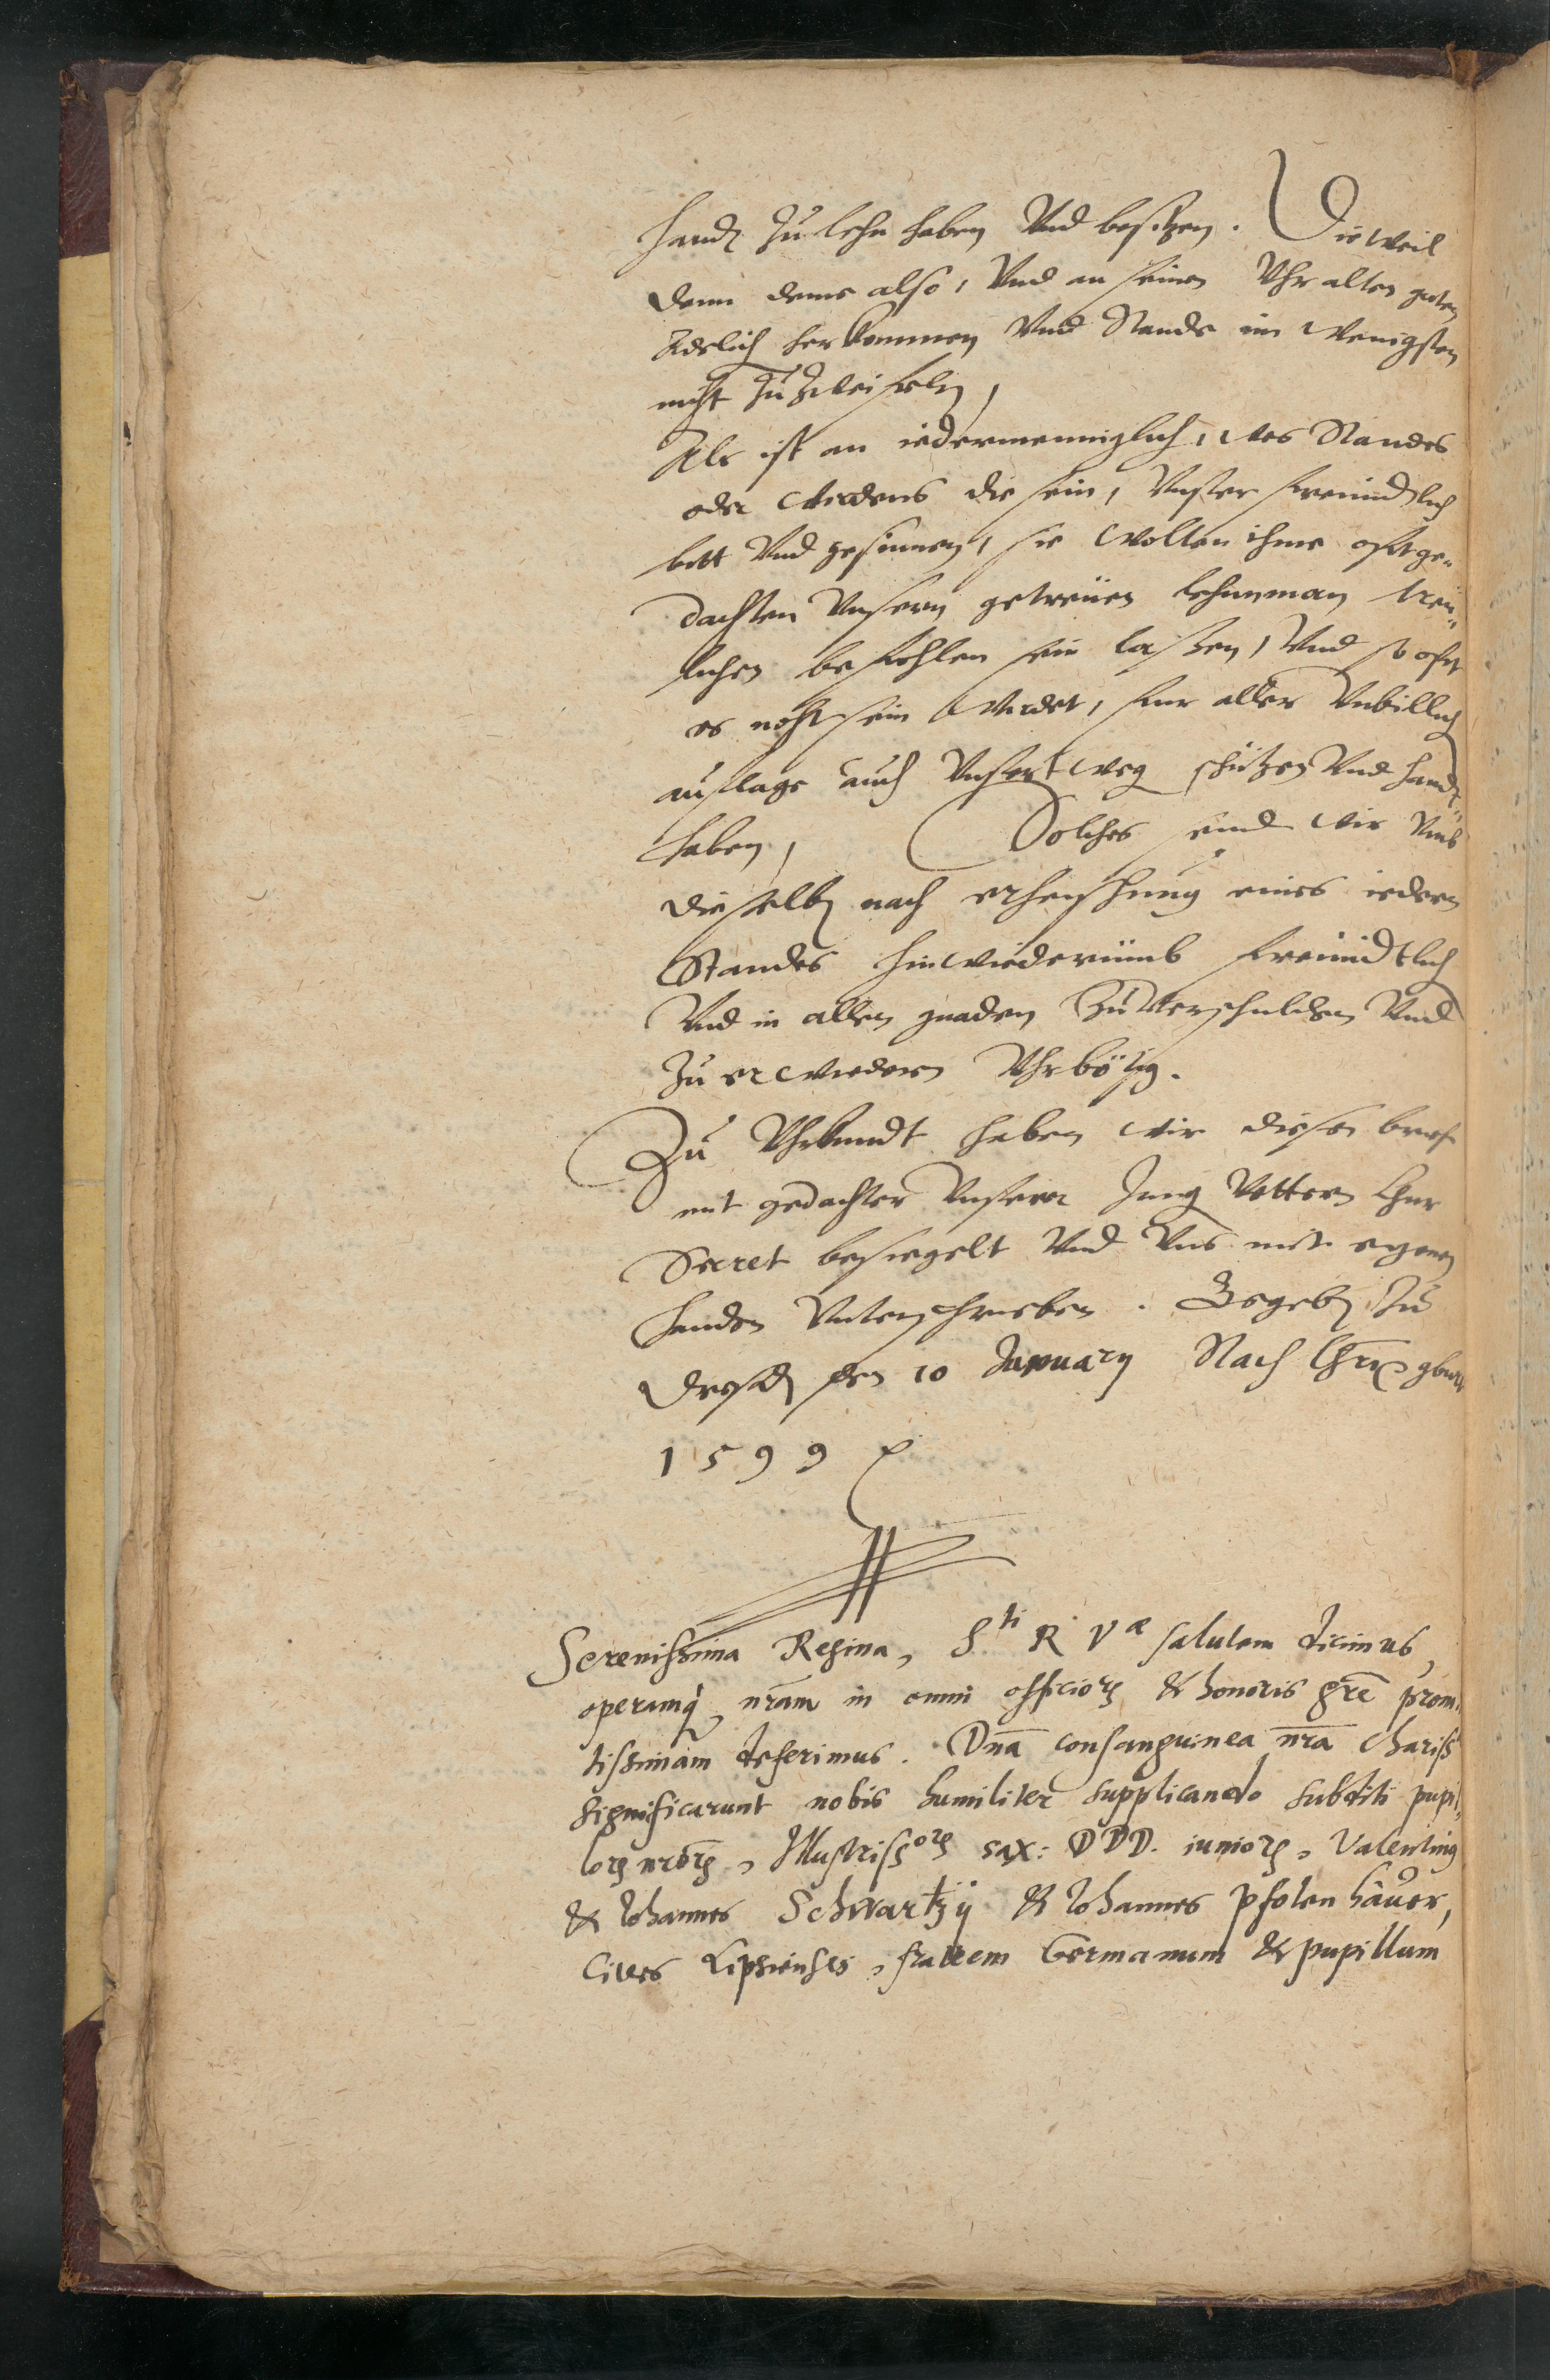 handt zu lehn haben Vnd besitzen. Dieweil
dann deme also, Vnd an seinen Vhralten guten
Adelich herkommen Vnd Stande im wenigsten
nicht zu zweifeln,
Als ist an iedermenniglich, wes Standes
oder wirdens die sein, Vnser freundtlich
bitt Vnd gesinnen, sie wollen ihme oftge„
dachten Vnsern getreuen lehnman treu„
lichen befohlen sein laßen, Vnd so oft
es noht sein wirdet, fur aller Vnbillich
auflage auch Vnsertweg schützen Vnd handt„
haben, Solches seind wir Vmb
dieselb nach erheischung eines iedern
Standes hinwiederumb freundtlich
Vnd in allen gnaden zu verschulden Vnd
zu erwiedern Vhrbötig.
Zu Vhrkundt haben wir diesen brief
mit gedachter Vnserer Jung Vettern Chur
Secret besiegelt Vnd Vns mit eigenen
handen Vnterschrieben. Gegeb zu
Dreßd den 10 January Nach Chri gburt
1599
Serenissima Regina, S^ti R V^æ salutem dicimus,
operamq nram in omni officiorʒ & honoris gre prom„
tissimam deferimus. Dna consanguinea nra chariss
significarunt nobis humiliter supplicando subditi pupil„
lorʒ nrorʒ, Illustriss^orʒ sax: DDD. iuniorʒ, Valentinus
& Iohannes Schwartzij & Iohannes Pfolenhauer,
Cives Lipsienses, fratrem Germanum & pupillum